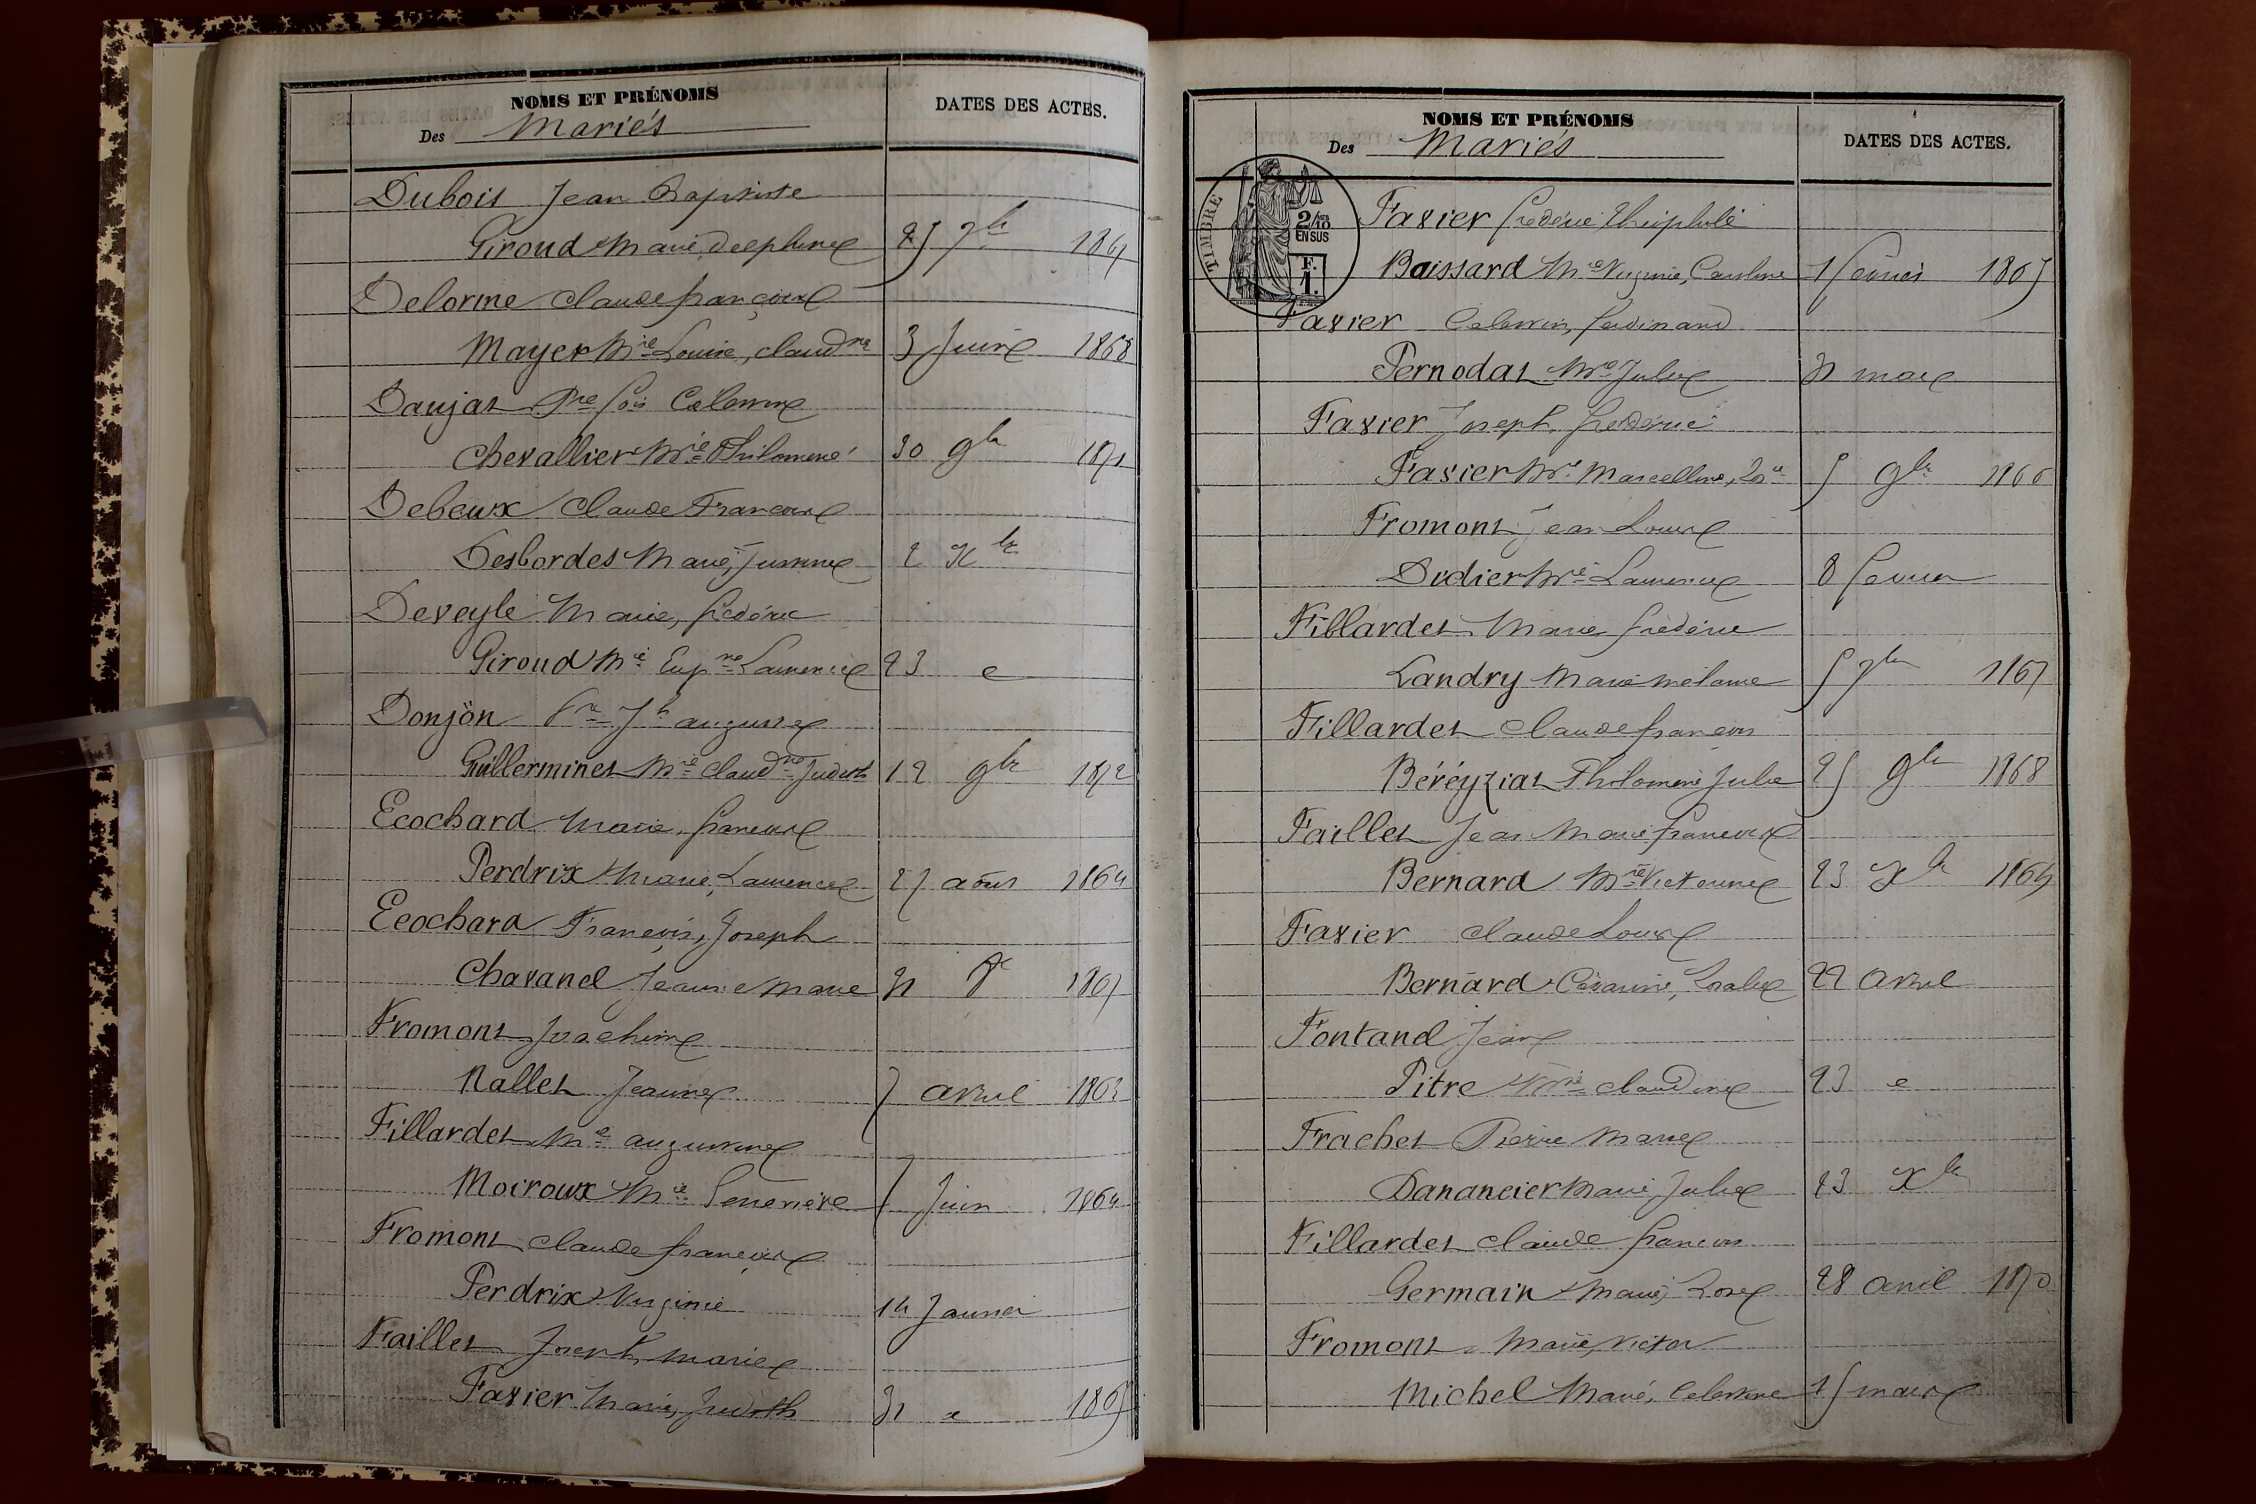 NOMS ET PRÉNOMS
Des Mariés
DATES DES ACTES.
Dubois Jean Baptiste
Giroud Marie, Delphine 25 7bre
Delorme Claude françois
Mayer Mie Louise, Claudne 3 Juin 1868
Daujat
Chevallier Mie Philomène 30 9bre 1871
Debeux Claude François
Desbordes Marie, Justine 2 Xbre
Deveyle Marie, frédéric
Giroud Mie Laurence 23 e
Donjon auguste
Guillerminet Mie Claudne Judith 12 9bre 1872
Ecochard Marie, françois
Perdrix Marie, Laurence 27 août 1864
Ecochard François, Joseph
Chavanel Jeanne Marie 31 1867
Fromont Joachim
Nallet Jeanne 7 avril 1863
Fillardet Mie augustine
Moiroux Mie Geneviève Juin 1864
Fromont Claude françois
Perdrix Virginie 14 Janvier
Faillet Joseph, Marie
Favier Marie, Judith 31 e 1865
NOMS ET PRÉNOMS
Des Mariés
DATES DES ACTES.
TIMBRE
2/10
EN SUS
F.
1.
Favier frédéric théophile
Baissard Mie Virginie, Caroline 1 février 1865
Favier Celestin, ferdinand
Pernodat Mie Julie 31 mars
Favier Joseph, frédéric
Favier Mie Marcelline 5 9bre 1866
Fromont Jean Louis
Didier Mie Laurence 8 fevrier
Fillardet Marie, frédéric
Landry Marie mélanie 5 7bre 1867
Fillardet Claude françois
Béréyziat Philomène Julie 25 9bre 1868
Faillet Jean Marie françois
Bernard Mie Victorine 23 Xbre
Favier Claude Louis
Bernard Césarine, Rosalie 22 avril
Fontanel Jean
Pitre Claudine 23 e
Frachet Pierre Marie
Danancier Marie, Julie 23 Xbre
Fillardet Claude françois
Germain Marie, Rose 28 avril 1870
Fromont Marie, Victor
Michel Marie, Celestine 15 mars